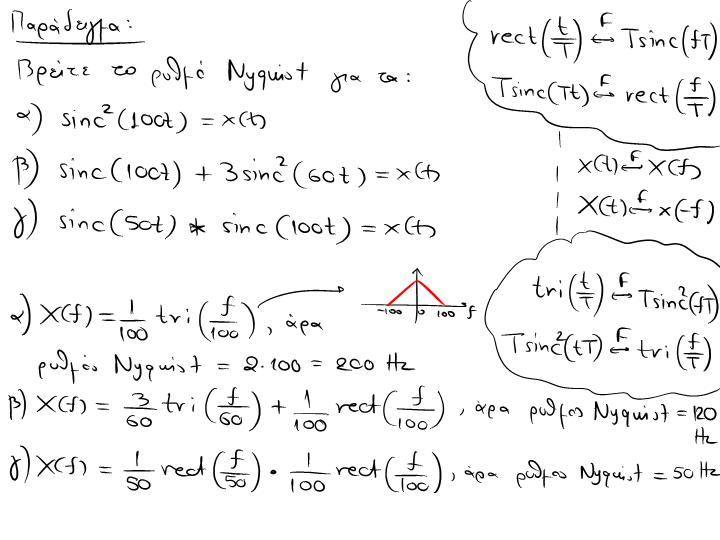 Παράδειγμα:
Βρείτε το ρυθμό Nyquist για τα:
α) sinc²(100t) = x(t)
β) sinc(100t) + 3sinc²(60t) = x(t)
γ) sinc(50t) * sinc(100t) = x(t)
rect(t/T) ↔F Tsinc(fT)
Tsinc(Tt) ↔F rect(f/T)
x(t) ↔F X(f)
X(t) ↔F x(-f)
tri(t/T) ↔F Tsinc²(fT)
Tsinc²(tT) ↔F tri(f/T)
α) X(f) = 1/100 tri(f/100), άρα
-100 0 100 f
ρυθμός Nyquist = 2·100 = 200 Hz
β) X(f) = 3/60 tri(f/60) + 1/100 rect(f/100), άρα ρυθμός Nyquist = 120 Hz
γ) X(f) = 1/50 rect(f/50) · 1/100 rect(f/100), άρα ρυθμός Nyquist = 50 Hz